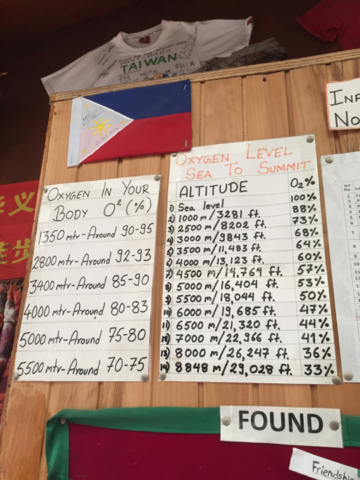 TAIWAN
OXYGEN IN YOUR
BODY O² (%)
1350 mtr-Around 90-95
2800 mtr-Around 92-93
3400 mtr-Around 85-90
4000 mtr-Around 80-83
5000 mtr-Around 75-80
5500 mtr-Around 70-75
OXYGEN LEVEL
SEA TO SUMMIT
ALTITUDE O₂%
1) Sea level 100%
2) 1000 m/3281 ft. 88%
3) 2500 m/8202 ft. 73%
4) 3000 m/9843 ft. 68%
5) 3500 m/11,483 ft. 64%
6) 4000 m/13,123 ft. 60%
7) 4500 m/14,764 ft. 57%
8) 5000 m/16,404 ft. 53%
9) 5500 m/18,044 ft. 50%
10) 6000 m/19,685 ft. 47%
11) 6500 m/21,320 ft. 44%
12) 7000 m/22,966 ft. 41%
13) 8000 m/26,247 ft. 36%
14) 8848 m/29,028 ft. 33%
IN
NO
FOUND
Friendship